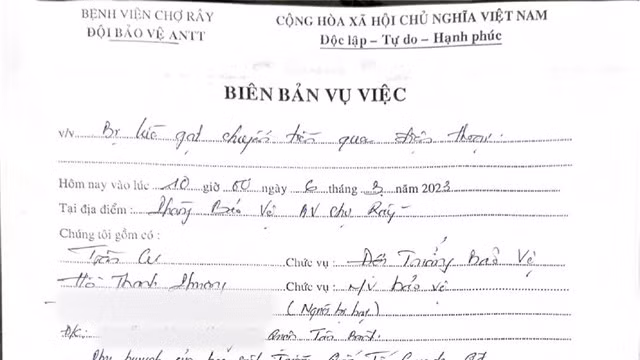 BỆNH VIỆN CHỢ RẪY
ĐỘI BẢO VỆ ANTT
CỘNG HÒA XÃ HỘI CHỦ NGHĨA VIỆT NAM
Độc lập – Tự do – Hạnh phúc
BIÊN BẢN VỤ VIỆC
V/V Bị lừa gạt chuyển tiền qua điện thoại.
Hôm nay vào lúc 10 giờ 00 ngày 6 tháng 3 năm 2023
Tại địa điểm: Phòng Bảo Vệ BV Chợ Rẫy
Chúng tôi gồm có:
Trần Chức vụ: Đội Trưởng Bảo Vệ
Hồ Thanh Chức vụ: N/V bảo vệ
(Người bị hại)
ĐK: Tân
Phụ huynh của